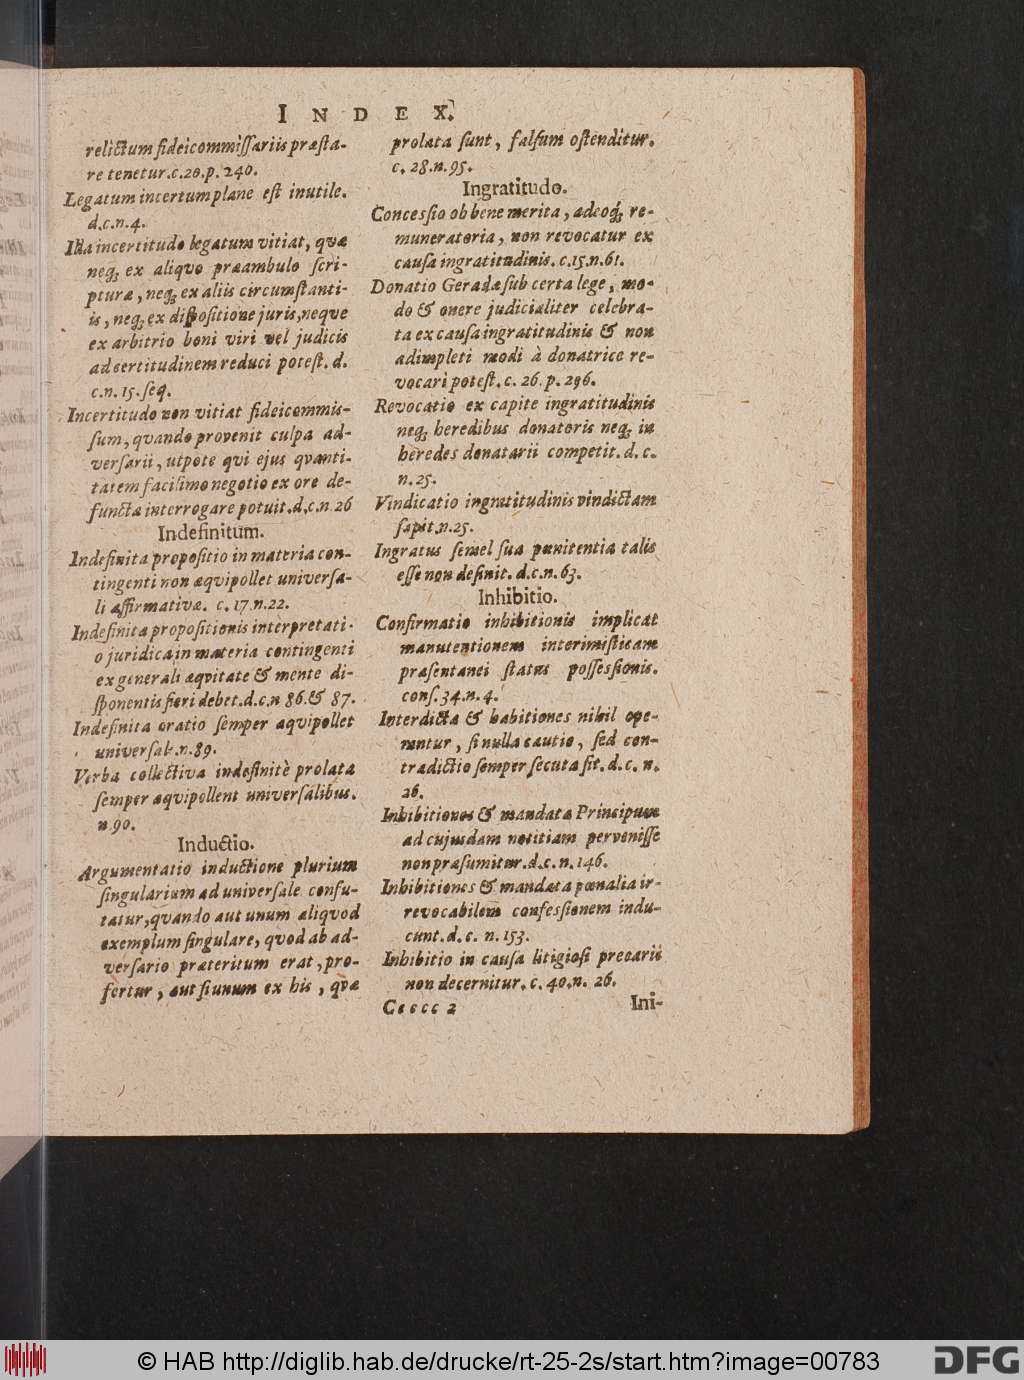 INDEX.
relictum fideicommiſſariis præſta-
re tenetur.c.20.p.240.
Legatum incertum plane eſt inutile.
d.c.n.4.
Illa incertitudo legatum vitiat, quæ
neq; ex aliquo præambulo ſcri-
pturæ, neq; ex aliis circumſtanti-
is, neq; ex diſpoſitione juris, neque
ex arbitrio boni viri vel judicis
ad certitudinem reduci poteſt. d.
c.n. 15. ſeq.
Incertitudo non vitiat fideicommiſ-
ſum, quando provenit culpa ad-
verſarii, utpote qui ejus quanti-
tatem facilimo negotio ex ore de-
functa interrogare potuit.d.c.n 26
Indefinitum.
Indefinita propoſitio in materia con-
tingenti non æquipollet univerſa-
li affirmativæ. c. 17.n.22.
Indefinita propoſitionis interpretati-
o juridica in materia contingenti
ex generali æquitate & mente di-
ſponentis fieri debet.d.c.n 86.& 87.
Indefinita oratio ſemper æquipollet
univerſali.n.89.
Verba collectiva indefinitè prolata
ſemper æquipollent univerſalibus.
n.90.
Inductio.
Argumentatio inductione plurium
ſingularium ad univerſale confu-
tatur, quando aut unum aliquod
exemplum ſingulare, quod ab ad-
verſario præteritum erat, pro-
fertur, aut ſi unum ex his, quæ
prolata ſunt, falſum oſtenditur.
c. 28.n.95.
Ingratitudo.
Conceſſio ob bene merita, adeoq; re-
muneratoria, non revocatur ex
cauſa ingratitudinis. c.15.n.61.
Donatio Geradæ ſub certa lege, mo-
do & onere judicialiter celebra-
ta ex cauſa ingratitudinis & non
adimpleti modi à donatrice re-
vocari poteſt. c. 26. p. 296.
Revocatio ex capite ingratitudinis
neq; heredibus donatoris neq; in
heredes donatarii competit. d. c.
n.25.
Vindicatio ingratitudinis vindictam
ſapit.n.25.
Ingratus ſemel ſua pœnitentia talis
eſſe non deſinit. d.c.n.63.
Inhibitio.
Confirmatio inhibitionis implicat
manutentionem interimiſticam
præſentanei ſtatus poſſeſſionis.
conſ. 34.n.4.
Interdicta & habitiones nihil ope-
rantur, ſi nulla cautio, ſed con-
tradictio ſemper ſecuta ſit. d. c. n.
26.
Inhibitiones & mandata Principum
ad cujusdam notitiam perveniſſe
non præſumitur.d.c.n.146.
Inhibitiones & mandata pœnalia ir-
revocabilem confeſſionem indu-
cunt.d.c. n.153.
Inhibitio in cauſa litigioſi precarii
non decernitur. c. 40.n. 26.
Ccccc 2
Ini-
© HAB http://diglib.hab.de/drucke/rt-25-2s/start.htm?image=00783
DFG